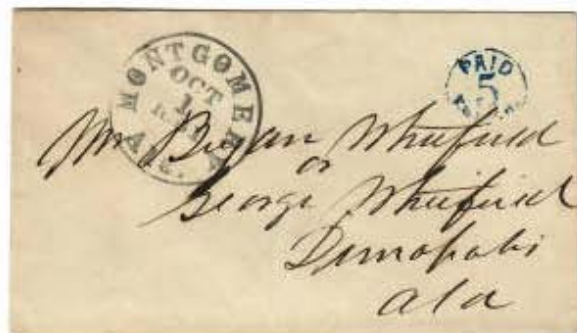 MONTGOMERY Ala.
OCT
PAID
5
Mr Bryan Whitfield
or
George Whitfield
Demopolis
Ala